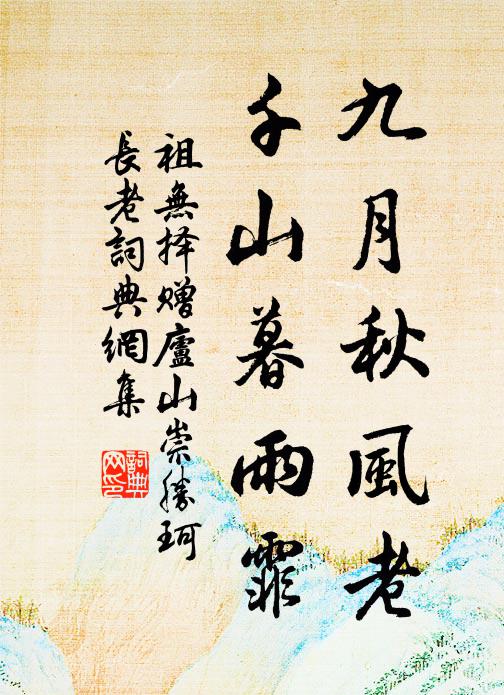 九月秋風老
千山暮雨霏
祖無择贈廬山崇勝珂
長老詞典網集
詞典
网印